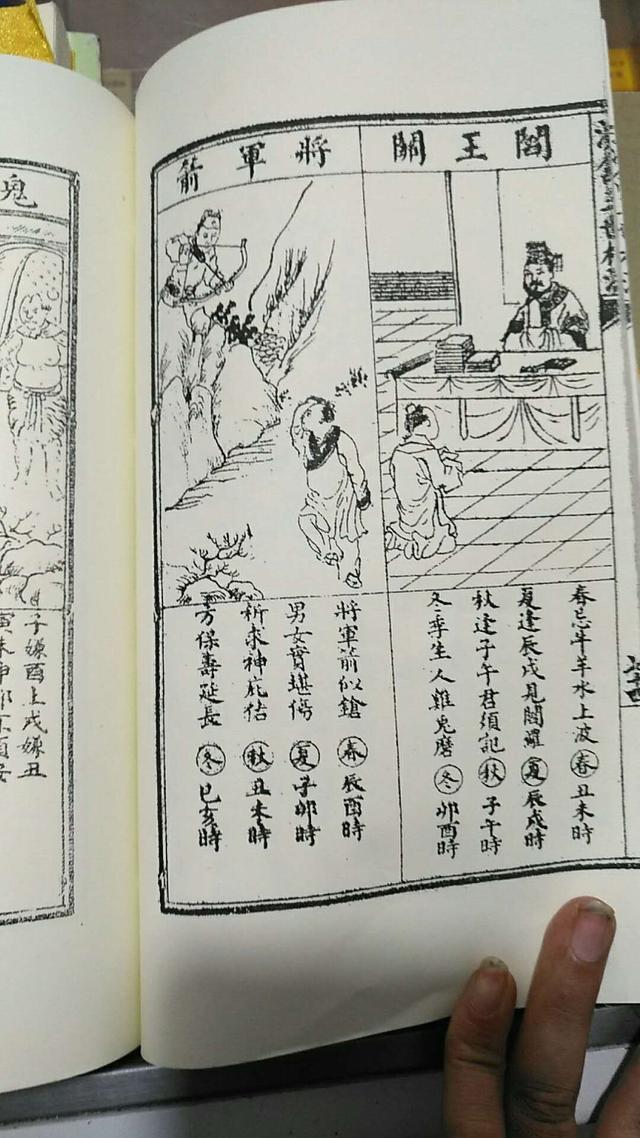 閻王關
春忌牛羊水上波 春 丑未時
夏逢辰戌見閻羅 夏 辰戌時
秋逢子午君須記 秋 子午時
冬季生人雞兔磨 冬 卯酉時
將軍箭
將軍箭似鎗 春 辰酉時
男女實堪傷 夏 子卯時
祈求神庇佑 秋 丑未時
方保壽延長 冬 巳亥時
鬼
子嫌酉上戌嫌丑
寅未申卯